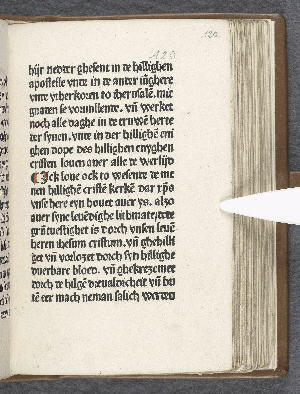 120
120
hijr nedder ghesent in de hillighen
apostelle vnde in de ander iūghere
vnde vtherkoren to iherusalē. mit
gnaden se vorvullende. vn̄ werket
noch alle daghe in de truwē herte
der synen. vnde in der hillighē eni
ghen dope des hillighen enyghen
cristen louen auer alle de werlijd
Ick loue ock to wesende de me
nen hillighē cristē kerkē dar xp̄s
vnse here eyn houet auer ys. alzo
auer syne leuēdighe litmate, de
is dorch vnsen leuē
heren ihesum cristum. vn̄ ghehilli
get vn̄ vorlozet dorch syn hillighe
duerbare bloed. vn̄
dorch de hilgē dreualdicheit vn̄ bu
tē eer mach neman salich werden